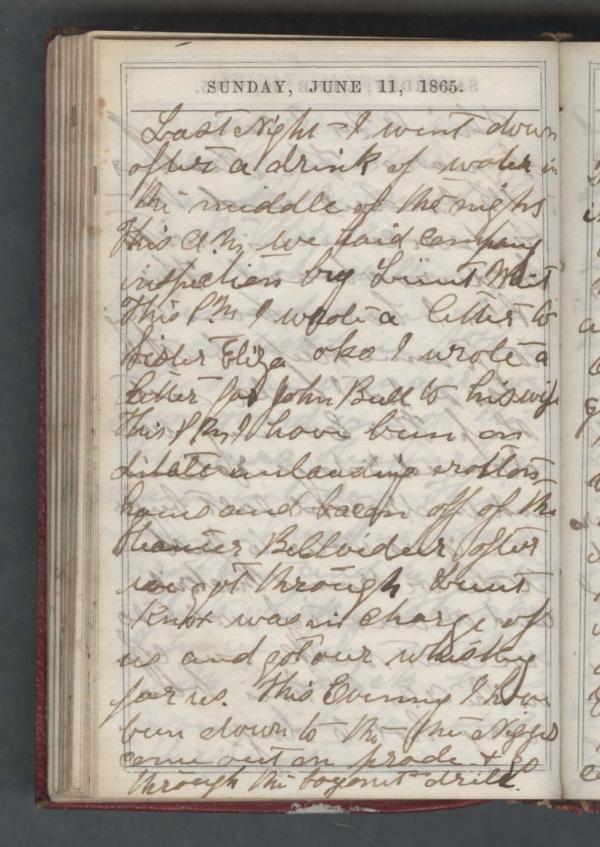 SUNDAY, JUNE 11, 1865.
Last Night I went down
after a drink of water in
the middle of the night
This A.M. we had company
inspection by Lieut
This P.M. I wrote a letter to
Sister Eliza also I wrote a
letter for John Bull to his wife
This P.M. I have bin on
unloading
hams and bacon off of the
steamer Bellvideer after
we got through Lieut
Knox was in charge of
us and got our whiskey
for us. This Evening I have
bin down to the the Niggers
come out on prade & go
through the bayonet drill.